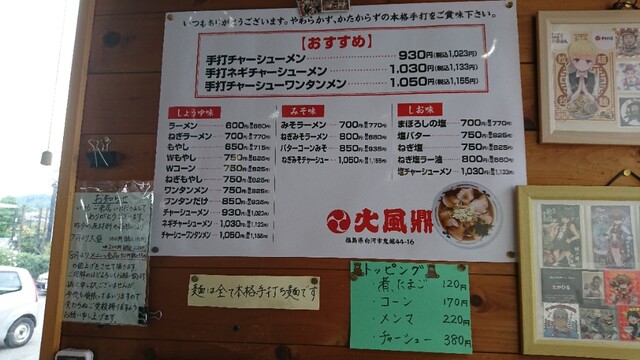 いつもありがとうございます。やわらかず、かたからずの本格手打をご賞味下さい。
【おすすめ】
手打チャーシューメン 930円(税込1,023円)
手打ネギチャーシューメン 1,030円(税込1,133円)
手打チャーシューワンタンメン 1,050円(税込1,155円)
しょうゆ味
ラーメン 600円 税込660円
ねぎラーメン 700円 税込770円
もやし 650円 税込715円
Wもやし 750円 税込825円
Wコーン 750円 税込825円
ねぎもやし 750円 税込825円
ワンタンメン 750円 税込825円
ワンタンだけ 850円 税込935円
チャーシューメン 930円 税込1,023円
ネギチャーシューメン 1,030円 税込1,133円
チャーシューワンタンメン 1,050円 税込1,155円
みそ味
みそラーメン 700円 税込770円
ねぎみそラーメン 800円 税込880円
バターコーンみそ 850円 税込935円
ねぎみそチャーシュー 1,050円 税込1,155円
しお味
まぼろしの塩 700円 税込770円
塩バター 750円 税込825円
ねぎ塩 750円 税込825円
ねぎ塩ラー油 800円 税込880円
塩チャーシューメン 1,030円 税込1,133円
火風鼎
福島県白河市鬼越44-16
お知らせ
麺は全て本格手打ち麺です
トッピング
・煮たまご 120円
・コーン 170円
・メンマ 220円
・チャーシュー 380円